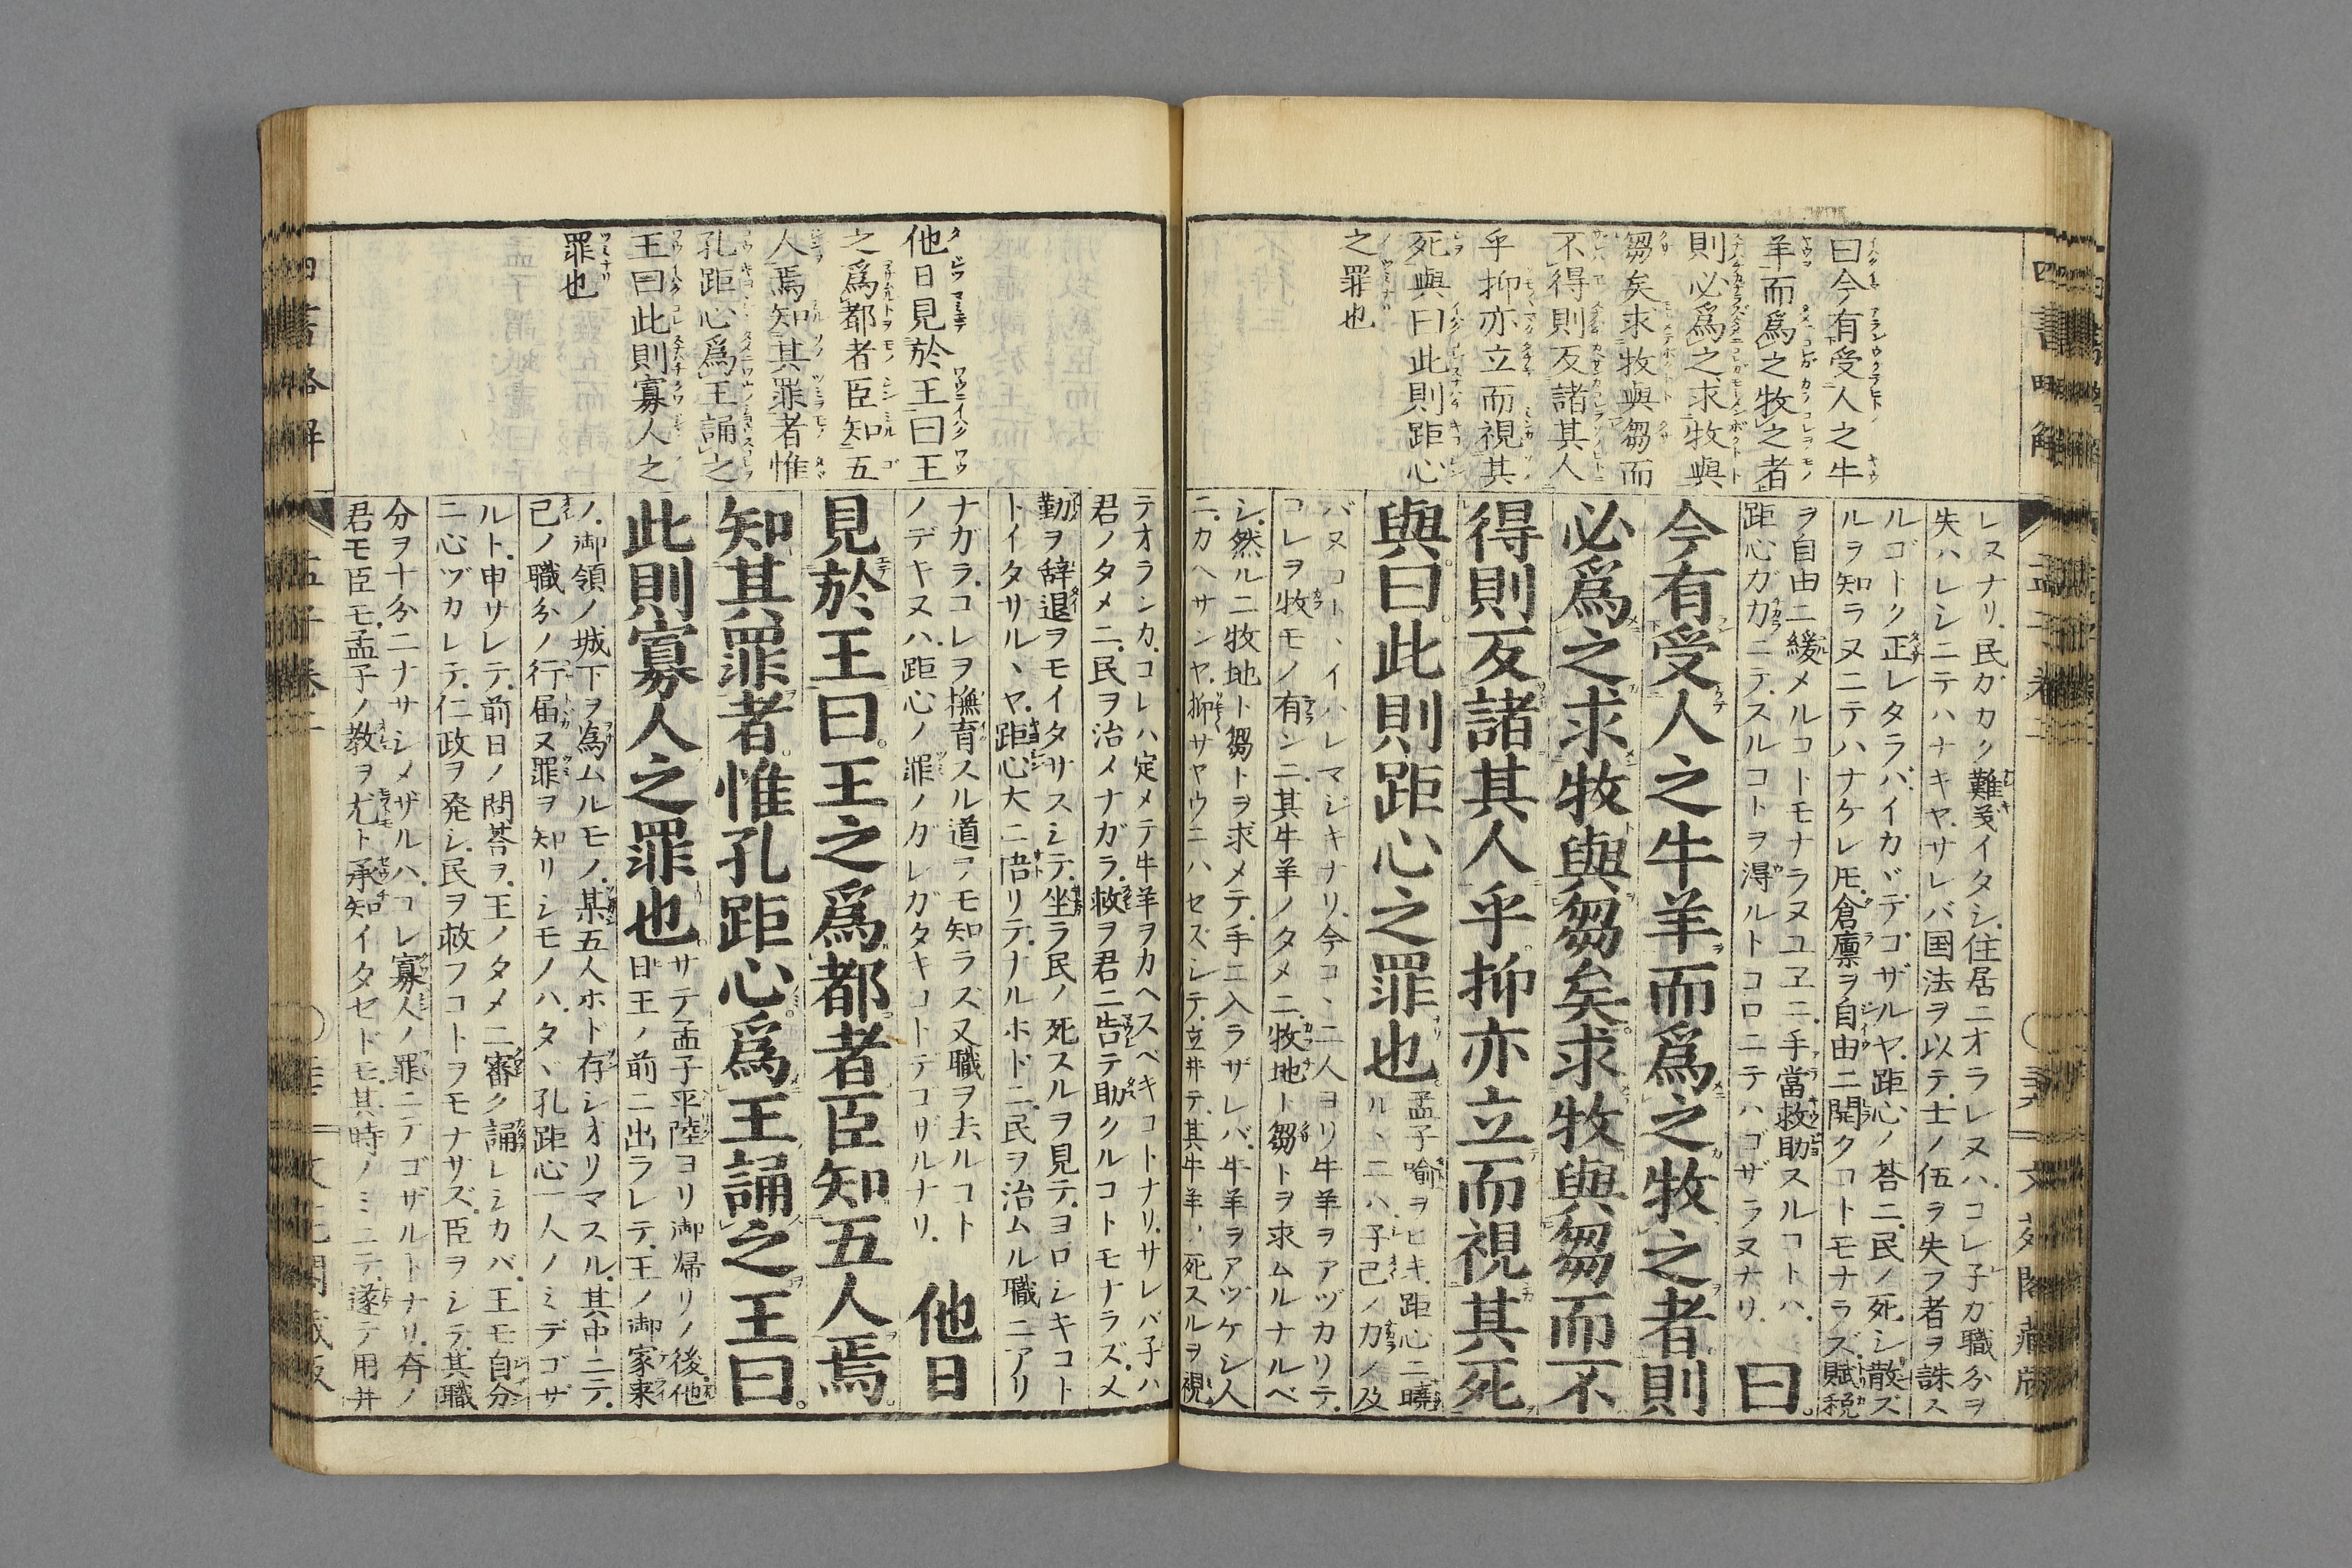 曰今有受人之牛
羊而爲之牧之者
則必爲之求牧與
芻矣求牧與芻而
不得則反諸其人
乎抑亦立而視其
死與曰此則距心
之罪也
レヌナリ民カカク難美イタシ住居ニオラレヌハコレ子ガ職分ヲ
失ハレシニテハナキヤサレバ国法ヲ以テ士ノ伍ヲ失フ者ヲ誅ス
ルゴトク正レタラバイカヾデゴザルヤ距心ノ荅ニ民ノ死シ散ズ
ルヲ知ラヌニテハナケレ𪜈倉廩ヲ自由ニ開クコトモナラズ賦税
ヲ自由ニ緩メルコトモナラヌユヱニ手當救助スルコトハ
距心ガ力ニテスルコトヲ得ルトコロニテハゴザラヌナリ 曰
今有受人之牛羊而爲之牧之者則
必爲之求牧與芻矣求牧與芻而不
得則反諸其人乎抑亦立而視其死
與曰此則距心之罪也
孟子喻ヲヒキ距心ニ曉
ルヽニハ子己ノ力ノ及
バヌコトヽイハレマジキナリ今コヽニ人ヨリ牛羊ヲアヅカリテ
コレヲ牧モノ有ンニ其牛羊ノタメニ牧地ト芻トヲ求ムルナルベ
シ然ルニ牧地ト芻トヲ求メテ手ニ入ラザレバ牛羊ヲアヅケシ人
ニカヘサンヤ抑サヤウニハセズシテ立井テ其牛羊ノ死スルヲ視
四書略解
孟子卷二
文苑閣蔵版
他日見於王曰王
之爲都者臣知五
人焉知其罪者惟
孔距心爲王誦之
王曰此則寡人之
罪也
テオランカコレハ定メテ牛羊ヲカヘスベキコトナリサレバ子ハ
君ノタメニ民ヲ治メナガラ救ヲ君ニ告テ助クルコトモナラズメ
勤ヲ辞退ヲモイタサスシテ坐ラ民ノ死スルヲ見テヨロシキコト
トイタサルヽヤ距心大ニ悟リテナルホドニ民ヲ治ムル職ニアリ
ナガラコレヲ撫育スル道ヲモ知ラス又職ヲ去ルコト
ノデキヌハ距心ノ罪ノガレガタキコトデコザルナリ 他日
見於王曰王之爲都者臣知五人焉
知其罪者惟孔距心爲王誦之王曰
此則寡人之罪也
サテ孟子平陸ヨリ御帰リノ後他
日王ノ前ニ出ラレテ王ノ御家来
ノ御領ノ城下ヲ為ムルモノ某五人ホド存シオリマスル其中ニテ
己ノ職分ノ行届ヌ罪ヲ知リシモノハタヾ孔距心一人ノミデゴザ
ルト申サレテ前日ノ問荅ヲ王ノタメニ審ク誦レシカバ王モ自分
ニ心ヅカレテ仁政ヲ発シ民ヲ救フコトヲモナサズ臣ヲシテ其職
分ヲ十分ニナサシメザルハコレ寡人ノ罪ニテゴザルトナリ斉ノ
君モ臣モ孟子ノ教ヲ尤ト承知イタセドモ其時ノミニテ遂テ用井
四書略解